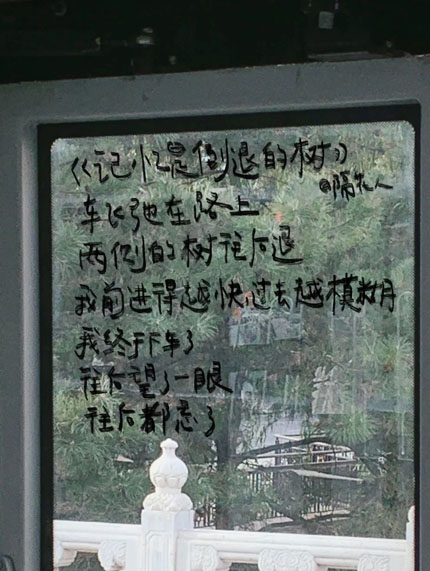 《记忆是倒退的树》
@隔花人
车飞驰在路上
两侧的树往后退
我前进得越快过去越模糊
我终于下车了
往后望了一眼
往后都忘了